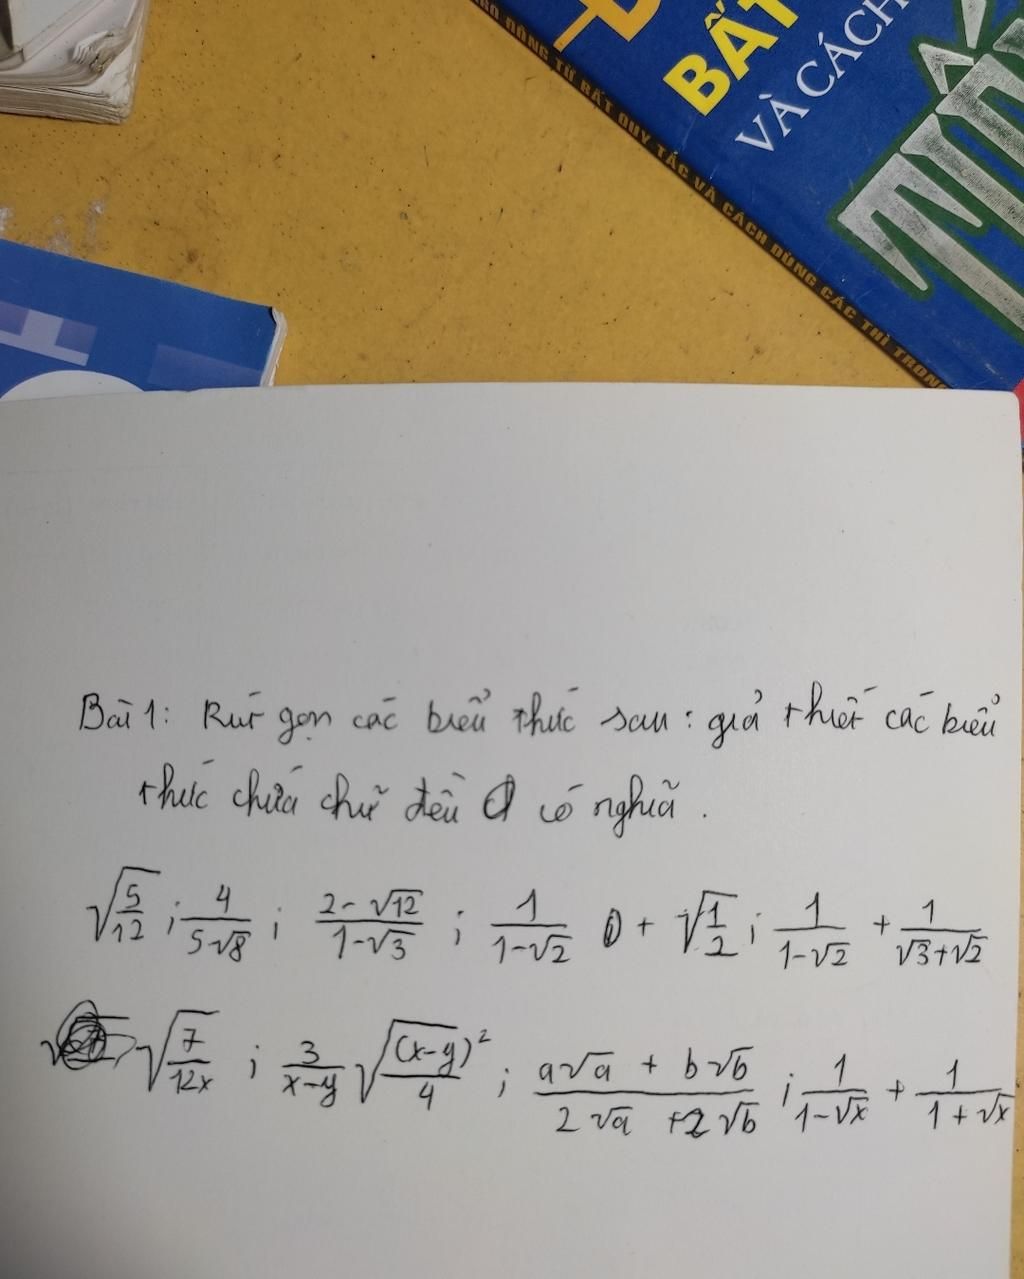 BẤT
VÀ CÁCH
ĐỘNG TỪ BẤT QUY TẮC VÀ CÁCH DÙNG CÁC THÌ TRONG
Bài 1: Rút gọn các biểu thức sau: giả thiết các biểu
thức chứa chữ đều có nghĩa.
√(5/12) ; 4/(5√8) ; (2-√12)/(1-√3) ; 1/(1-√2) + √(1/2) ; 1/(1-√2) + 1/(√3+√2)
√(7/12x) ; 3/(x-y) √((x-y)²/4) ; (a√a + b√b)/(2√a + 2√b) ; 1/(1-√x) + 1/(1+√x)